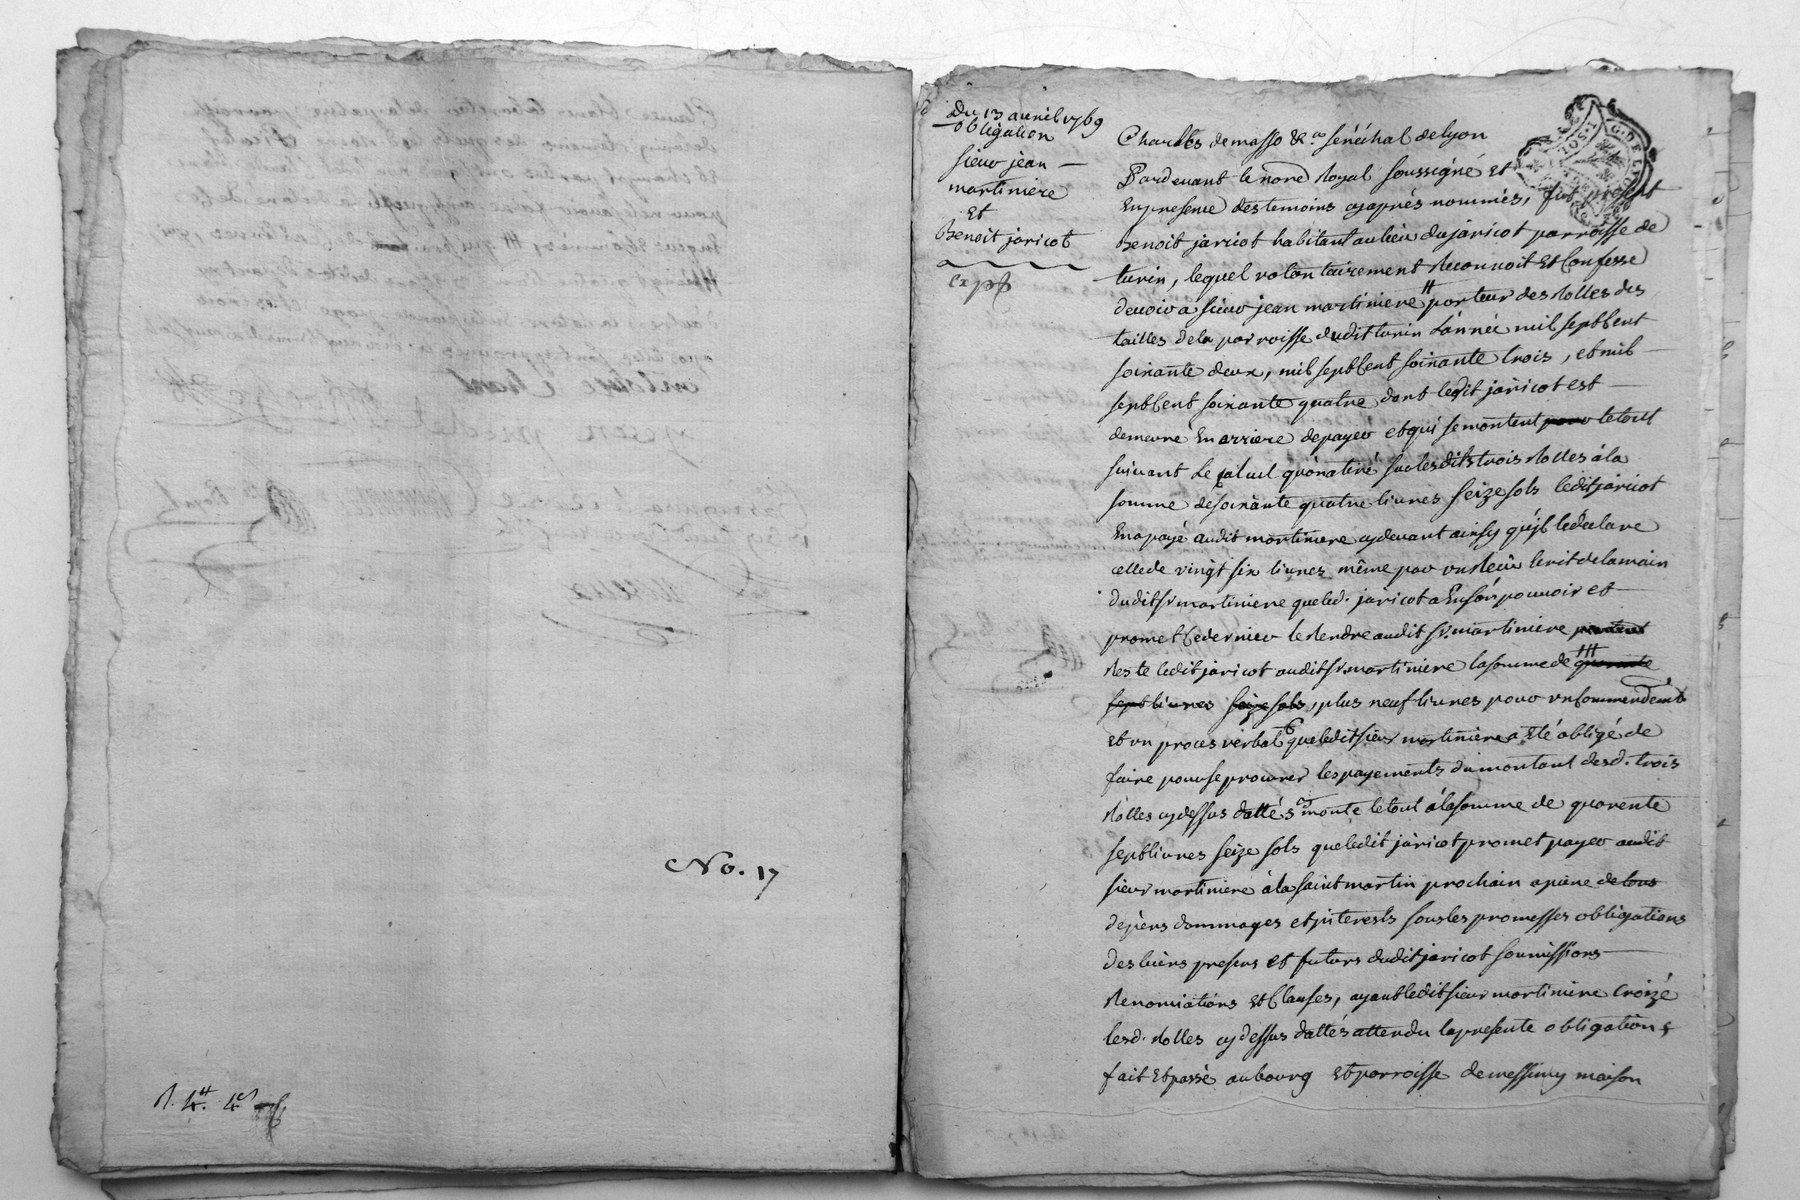 No. 17
Du 13 avril 1769
obligation
sieur jean
martiniere
Et
Benoit jaricot
exp
Charles demasso &c.a sénéchal delyon
Pardevant le no.re Royal soussigné et
Enpresence destemoins cyaprès nommés, fut present
Benoit jaricot habitant aulieu dujaricot parroisse de
turin, lequel volontairement Reconnoit et Confesse
devoir a sieur jean martiniere # porteur des Rolles des
tailles dela parroisse dudit turin L'année mil sept Cent
soixante deux, mil sept Cent soixante trois, et mil
sept Cent soixante quatre dont ledit jaricot est
demeuré En arriere depayer et qui se montent pour letout
suivant Le Calcul qu'on a tiré sur lesdits trois Rolles à la
somme de soixante quatre livres seize sols ledit jaricot
En a payé audit martiniere cydevant ainsy qu'jl le declare
celle de vingt six livres même par un Recû Ecrit de la main
dudit sr martiniere que led. jaricot a En son pouvoir et
promet Cedernier le Rendre audit sr. martiniere
Reste ledit jaricot audit sr martiniere la somme de ### quarante
sept livres seize sols, plus neuf livres pour un Commendement
et un proces verbal que ledit sieur martiniere a Eté obligé de
faire pour se procurer les payements du montant desd. trois
Rolles cydessus dattés monte le tout à la somme de quarente
sept livres seize sols que ledit jaricot promet payer audit
sieur martiniere à la saint martin prochain a peine de tous
depens dommages et jnterests sous les promesses obligations
des biens presens et futurs dudit jaricot soumissions
Renonciations et Clauses, ayant ledit sieur martiniere Croizé
lesd. Rolles cydessus dattés attendu la presente obligation
fait et passé au bourg et parroisse de messimy maison